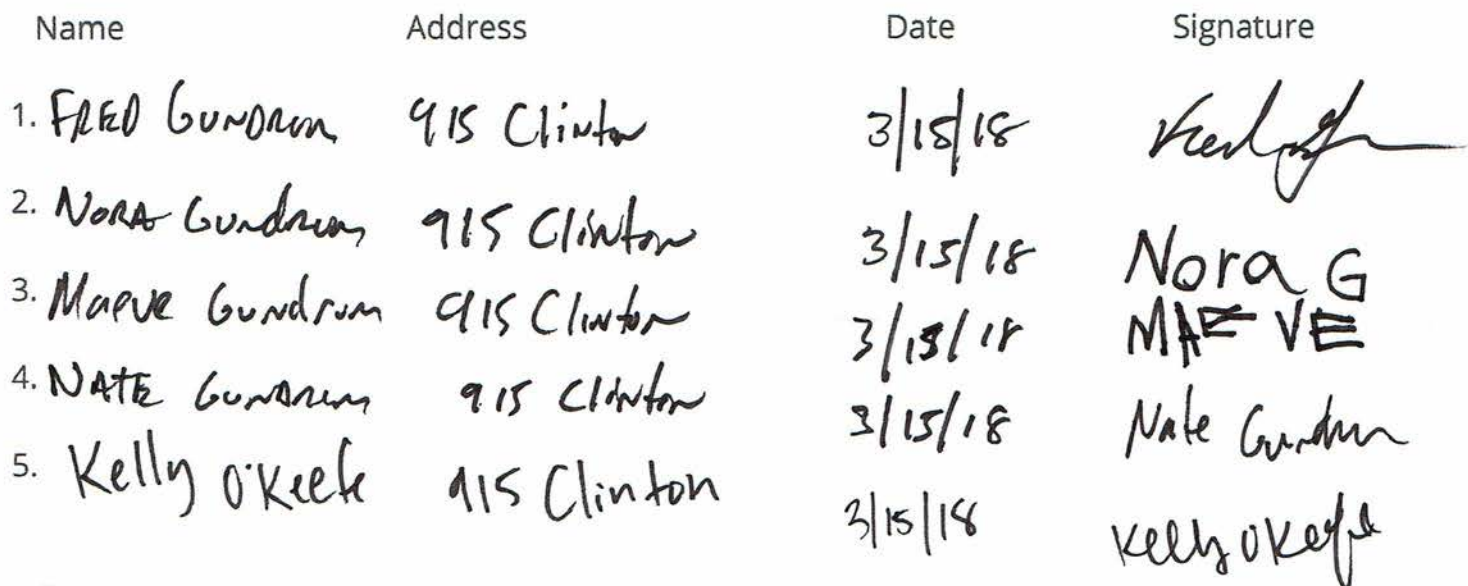 Name Address Date Signature
1. FRED GUNDRUM 915 Clinton 3/15/18
2. NORA Gundrum 915 Clinton 3/15/18 Nora G
3. Maeve Gundrum 915 Clinton 3/15/18 MAEVE
4. NATE GUNDRUM 915 Clinton 3/15/18 Nate Gundrum
5. Kelly O'Keefe 915 Clinton 3/15/18 Kelly O'Keefe